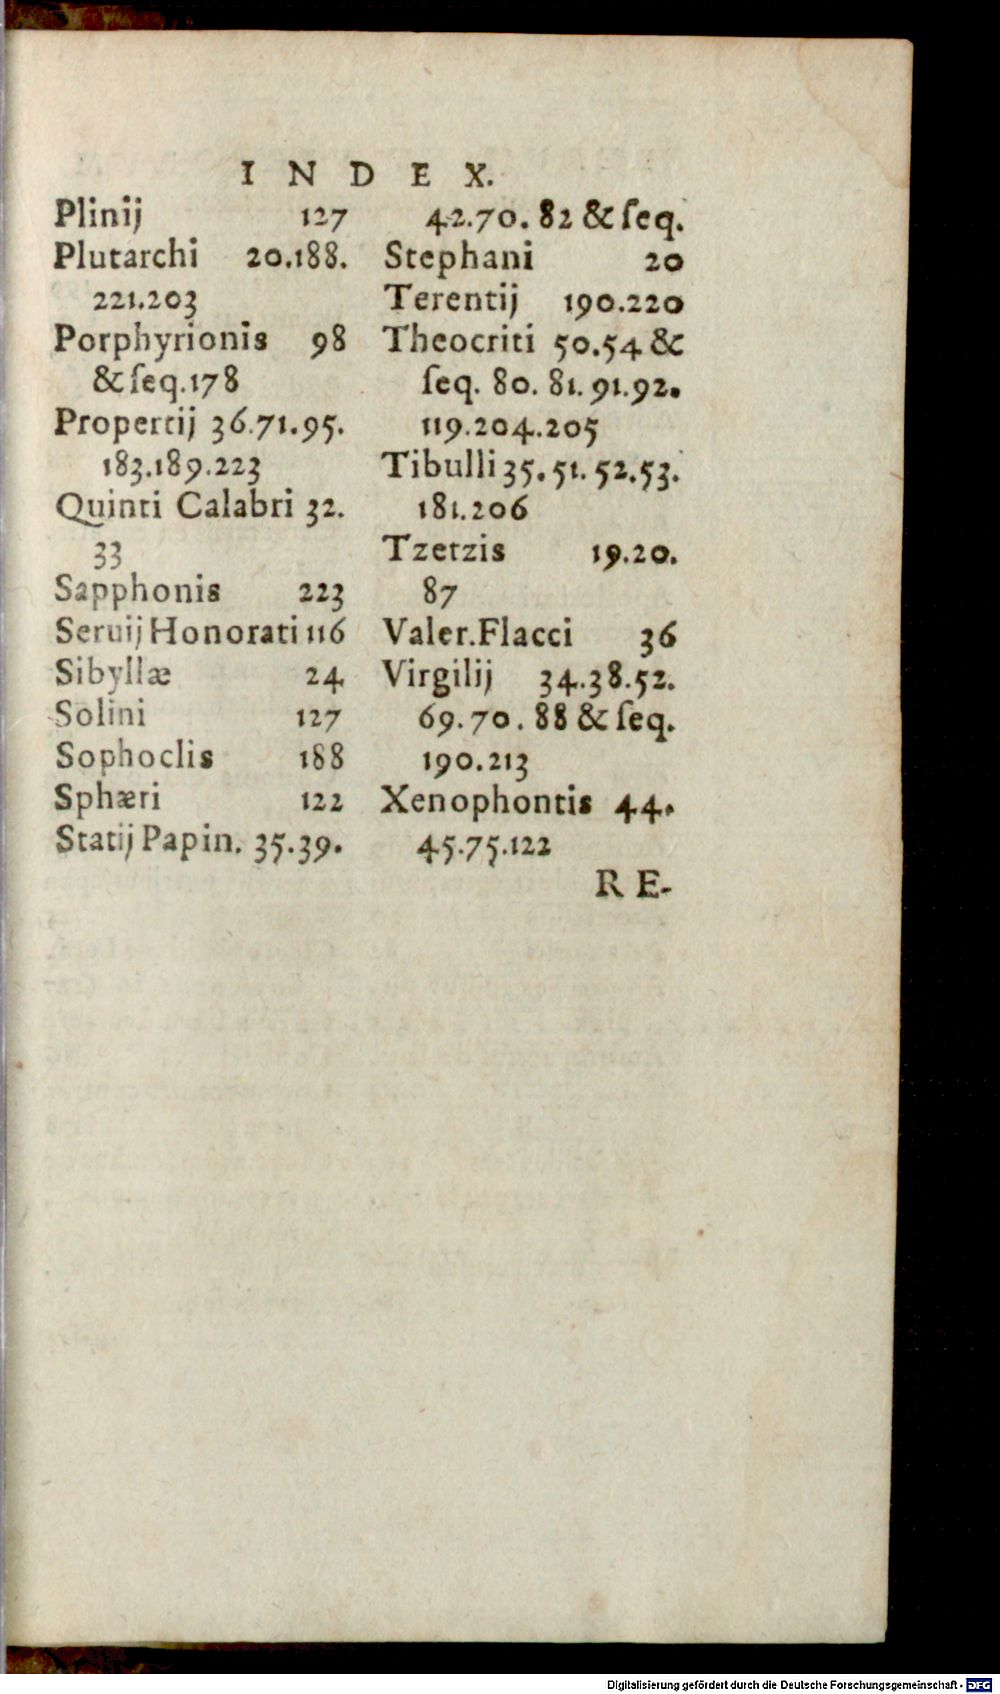 INDEX.
Plinij 127
Plutarchi 20.188.
221.203
Porphyrionis 98
& ſeq.178
Propertij 36.71.95.
183.189.223
Quinti Calabri 32.
33
Sapphonis 223
Seruij Honorati 116
Sibyllæ 24
Solini 127
Sophoclis 188
Sphæri 122
Statij Papin. 35.39.
42.70.82 & ſeq.
Stephani 20
Terentij 190.220
Theocriti 50.54 &
ſeq. 80. 81.91.92.
119.204.205
Tibulli 35.51.52.53.
181.206
Tzetzis 19.20.
87
Valer.Flacci 36
Virgilij 34.38.52.
69.70.88 & ſeq.
190.213
Xenophontis 44.
45.75.122
RE-
Digitalisierung gefördert durch die Deutsche Forschungsgemeinschaft - DFG